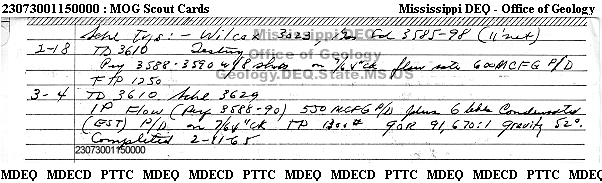 23073001150000 : MOG Scout Cards Mississippi DEQ - Office of Geology
Schl Tops: - Wilcox 3023, Sd 3585-98 (11' net)
2-18 TD 3610 Testing
Mississippi DEQ
Office of Geology
Pay 3588-3590 w/8 shots on 7/64" ck flow rate 600 MCFG P/D
Geology.DEQ.State.MS.US
FTP 1250
3-4 TD 3610 Schl 3629
IP Flow (Pay 3588-90) 550 MCFG P/D plus 6 bbls Condensate
(EST) P/D on 7/64" ck TP 1300# GOR 91,670:1 gravity 52°.
Completed 2-11-65
23073001150000
MDEQ MDECD PTTC MDEQ MDECD PTTC MDEQ MDECD PTTC MDEQ MDECD PTTC MDEQ